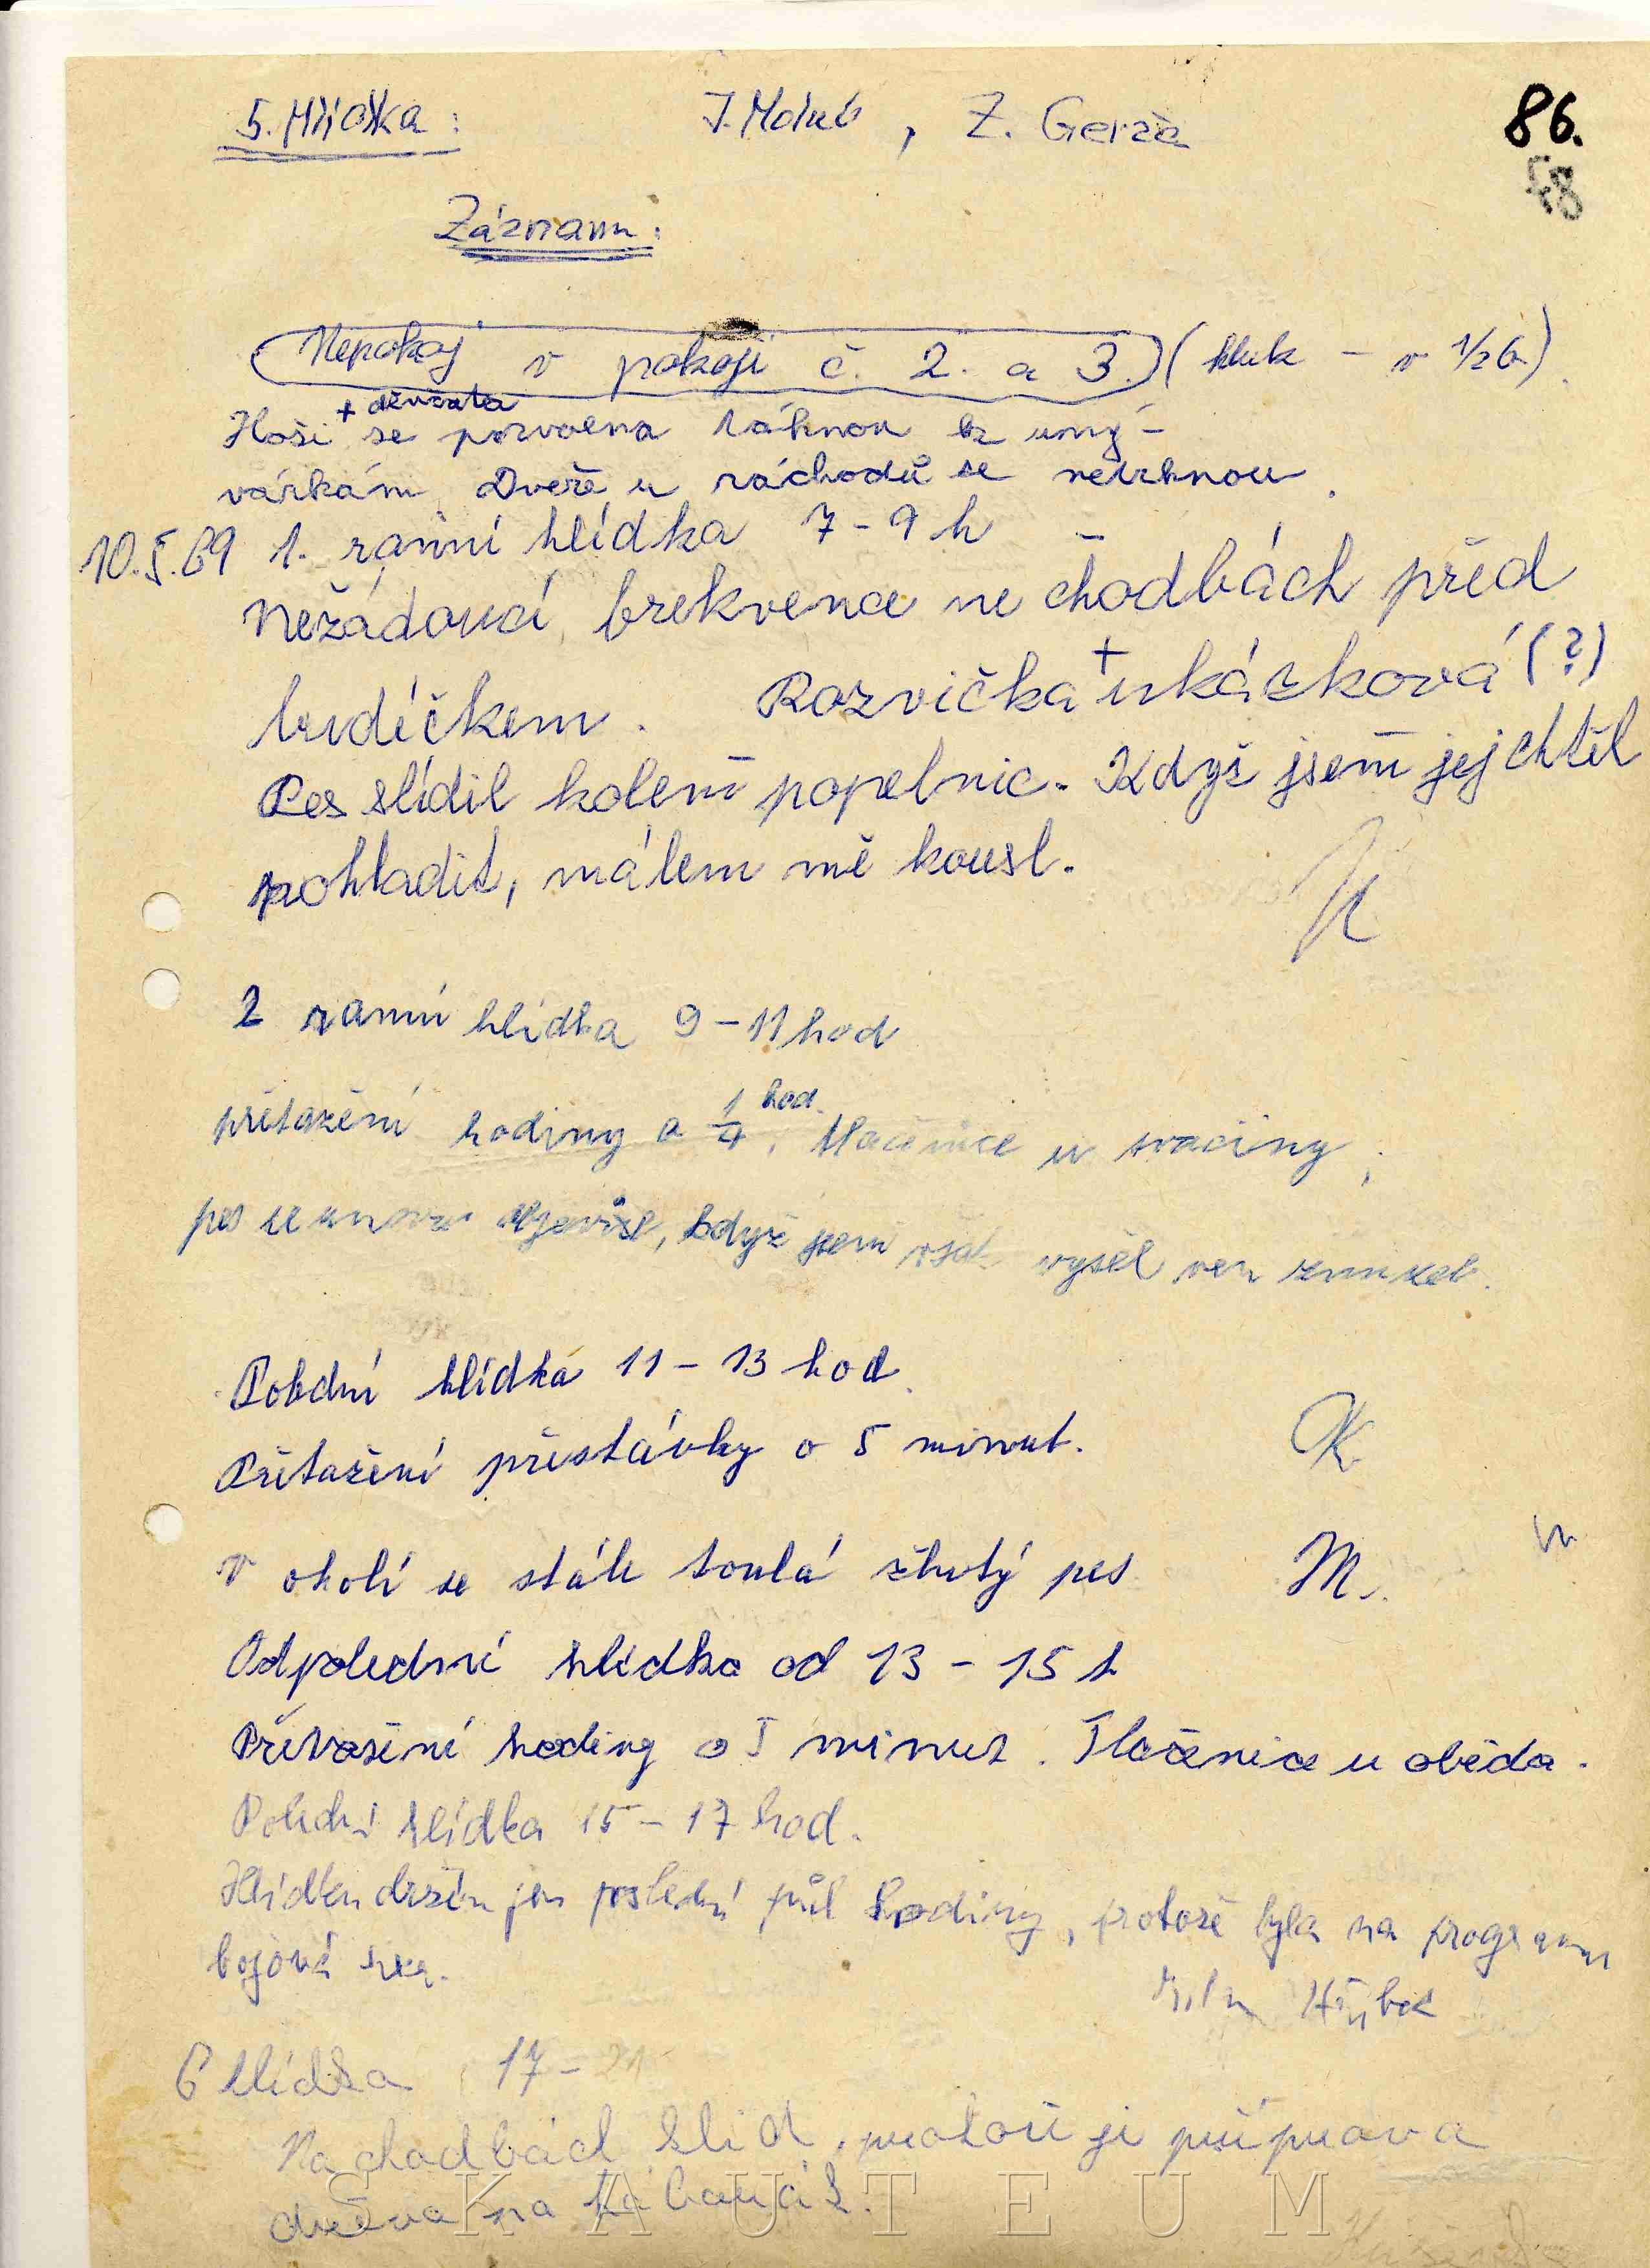 5. Hlídka: J. Holub, Z. Gerža
86.
78
Záznam:
Nepokoj v pokoji č. 2. a 3. (hluk - v 1/2 6.)
+ děvčata
Hoši se pozvolna táhnou k umý-
várkám. Dveře u záchodů se netrhnou.
10.5.69 1. ranní hlídka 7 - 9 h
Nežádoucí frekvence na chodbách před
budíčkem. Rozvička + ukázková (?)
Pes slídil kolem popelnic. Když jsem jej chtěl
pohladit, málem mě kousl.
2 ranní hlídka 9 - 11 hod
přetažení hodiny o 1/4 hod. tlačenice u svačiny,
pes se znovu objevil, když jsem však vyšel ven zmizel.
Polední hlídka 11 - 13 hod.
Přetažení přestávky o 5 minut.
K
V okolí se stále toulá žlutý pes M.
Odpolední hlídka od 13 - 15 h
Přetažení hodiny o 5 minut. Tlačenice u oběda.
Polední hlídka 15 - 17 hod.
Hlídku držím jen poslední půl hodiny, protože byla na programu
bojová hra.
6 hlídka 17 - 21
Na chodbách klid, protože je příprava
dřeva na táborák.
SKAUTEUM